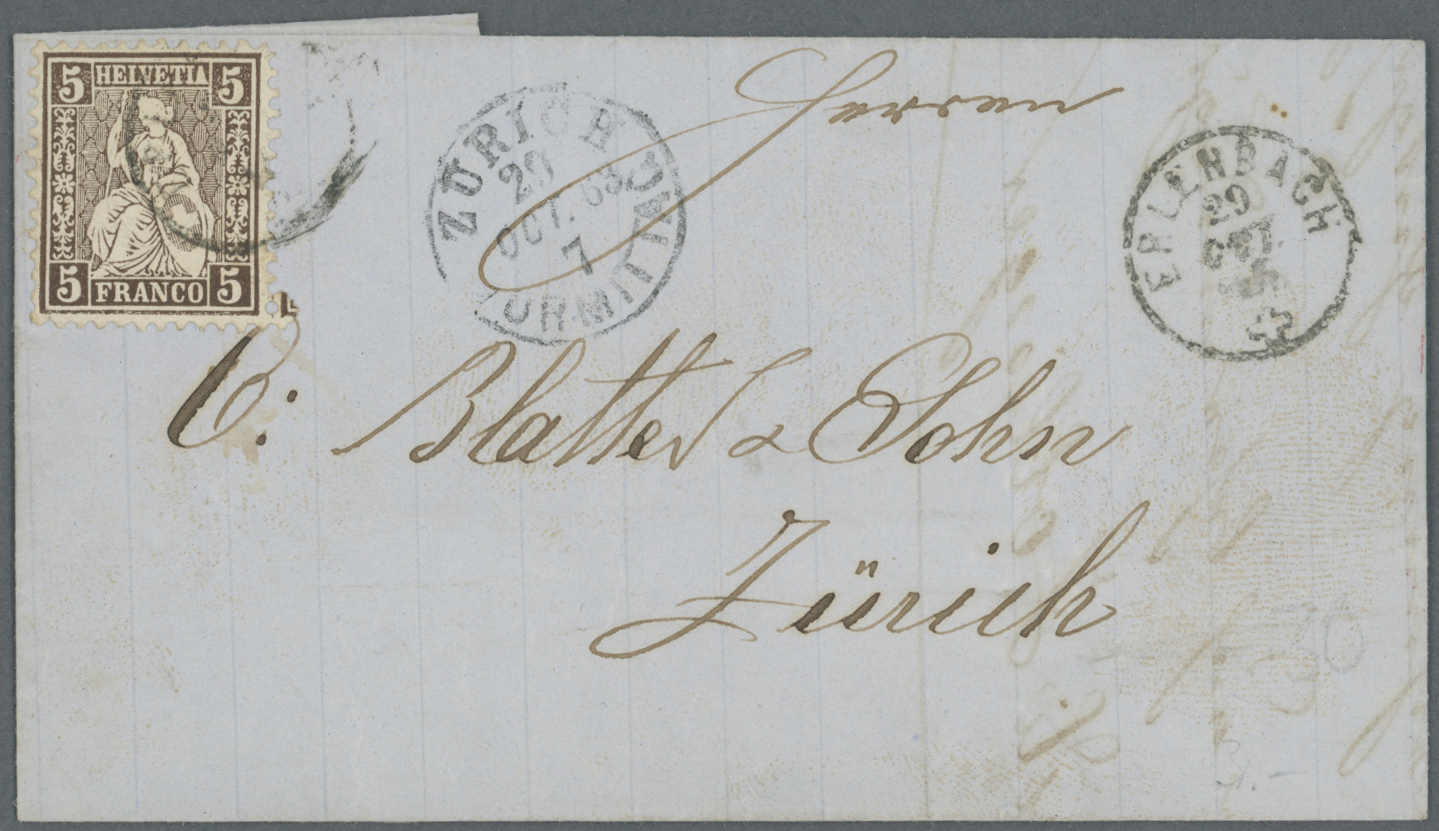 5 HELVETIA 5
5 FRANCO 5
ZÜRICH
29
OCT. 63
7
VORMITTAG
ERLENBACH
29
OCT
Herren
C: Blatter & Sohn
Zürich
30
3.-